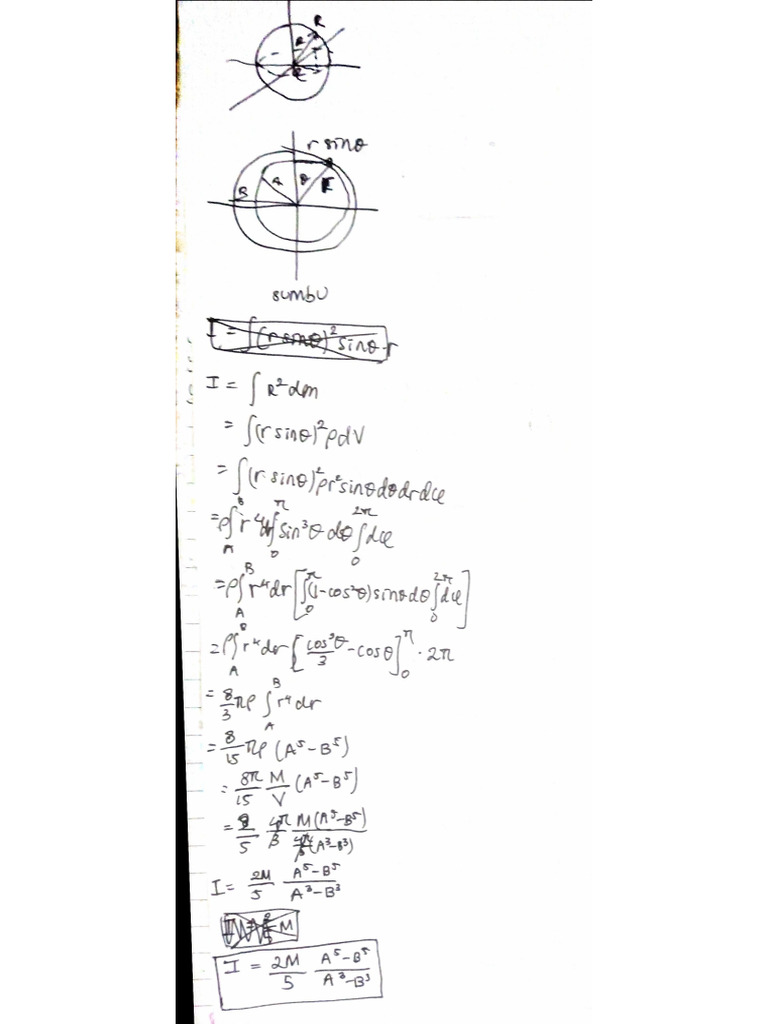 R
R
R
r sinθ
B A θ r
sumbu
I = ∫(r sinθ)² sinθ r
I = ∫ R² dm
= ∫(r sinθ)² ρdV
= ∫(r sinθ)² ρr² sinθ dθ dr dφ
= ρ∫_A^B r⁴ dr ∫_0^π sin³θ dθ ∫_0^2π dφ
= ρ∫_A^B r⁴ dr [∫_0^π (1-cos²θ) sinθ dθ ∫_0^2π dφ]
= ρ∫_A^B r⁴ dr [cos³θ/3 - cosθ]_0^π · 2π
= 8/3 πρ ∫_A^B r⁴ dr
= 8/15 πρ (A⁵ - B⁵)
= 8π/15 M/V (A⁵ - B⁵)
= 2/5 4π/3 M(A⁵-B⁵)/(4π/3 (A³-B³))
I = 2M/5 (A⁵-B⁵)/(A³-B³)
I = 2M/5 (A⁵-B⁵)/(A³-B³)